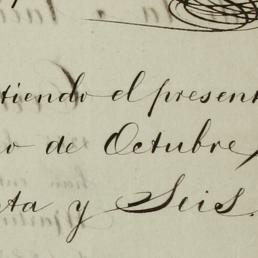 tiendo el present
o de Octubre,
ta y Seis.